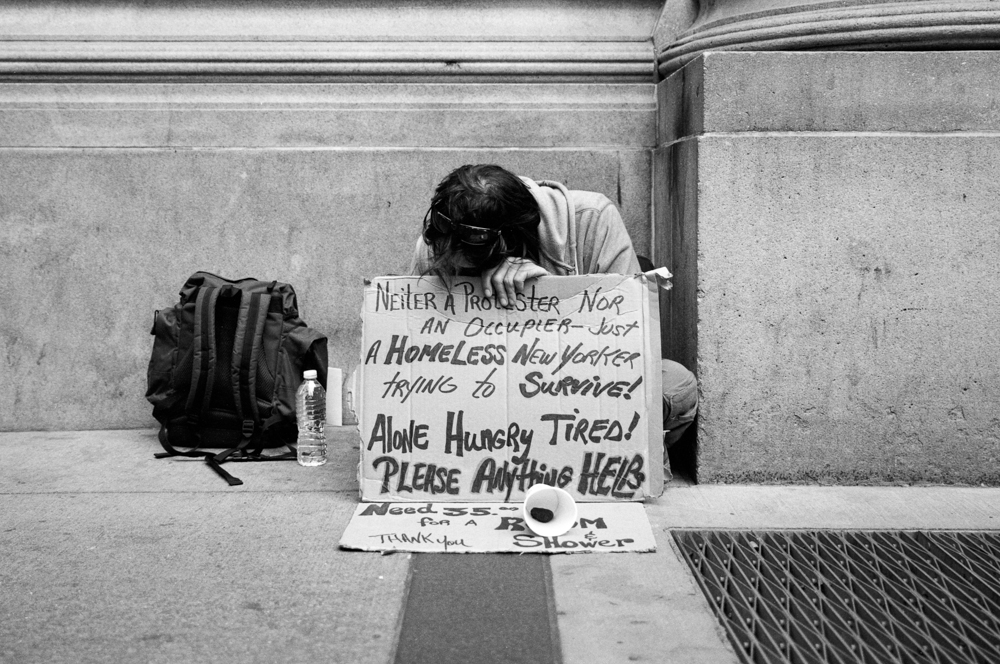 NEITER A PROTESTER NOR
AN OCCUPIER - JUST
A HOMELESS NEW YORKER
TRYING to SURVIVE!
ALONE HUNGRY TIRED!
PLEASE ANYthing HELPS
Need 35.00
for A ROOM
THANK you & SHOWER